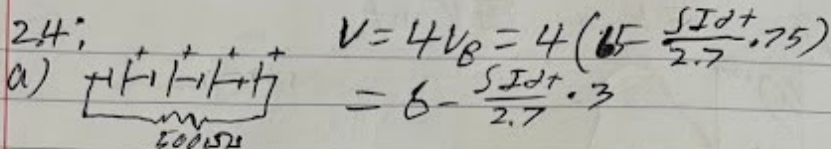 2.4:
a)
+ + + +
500Ω
V = 4V_B = 4(1.5 - ∫Idt/2.7 · .75)
= 6 - ∫Idt/2.7 · 3